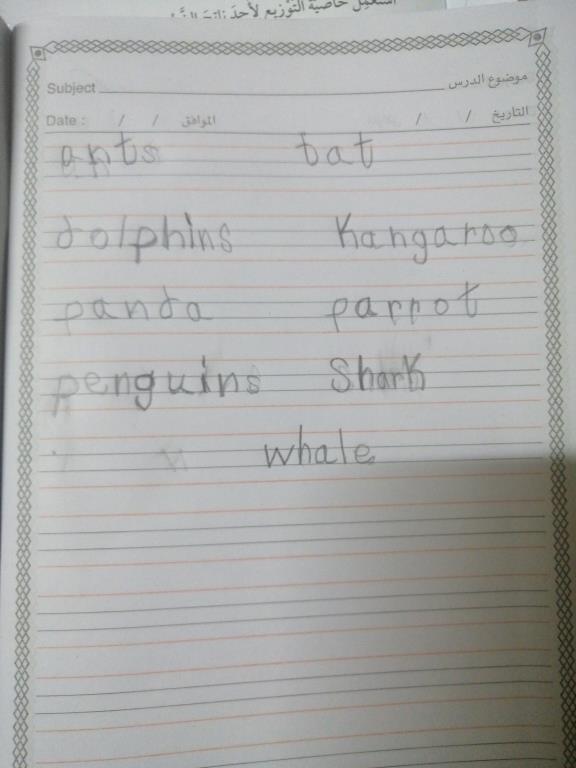 استعمل خاصية التوزيع لأحد
Subject موضوع الدرس
Date : / / الموافق / / التاريخ
ants bat
dolphins Kangaroo
panda parrot
penguins Shark
whale